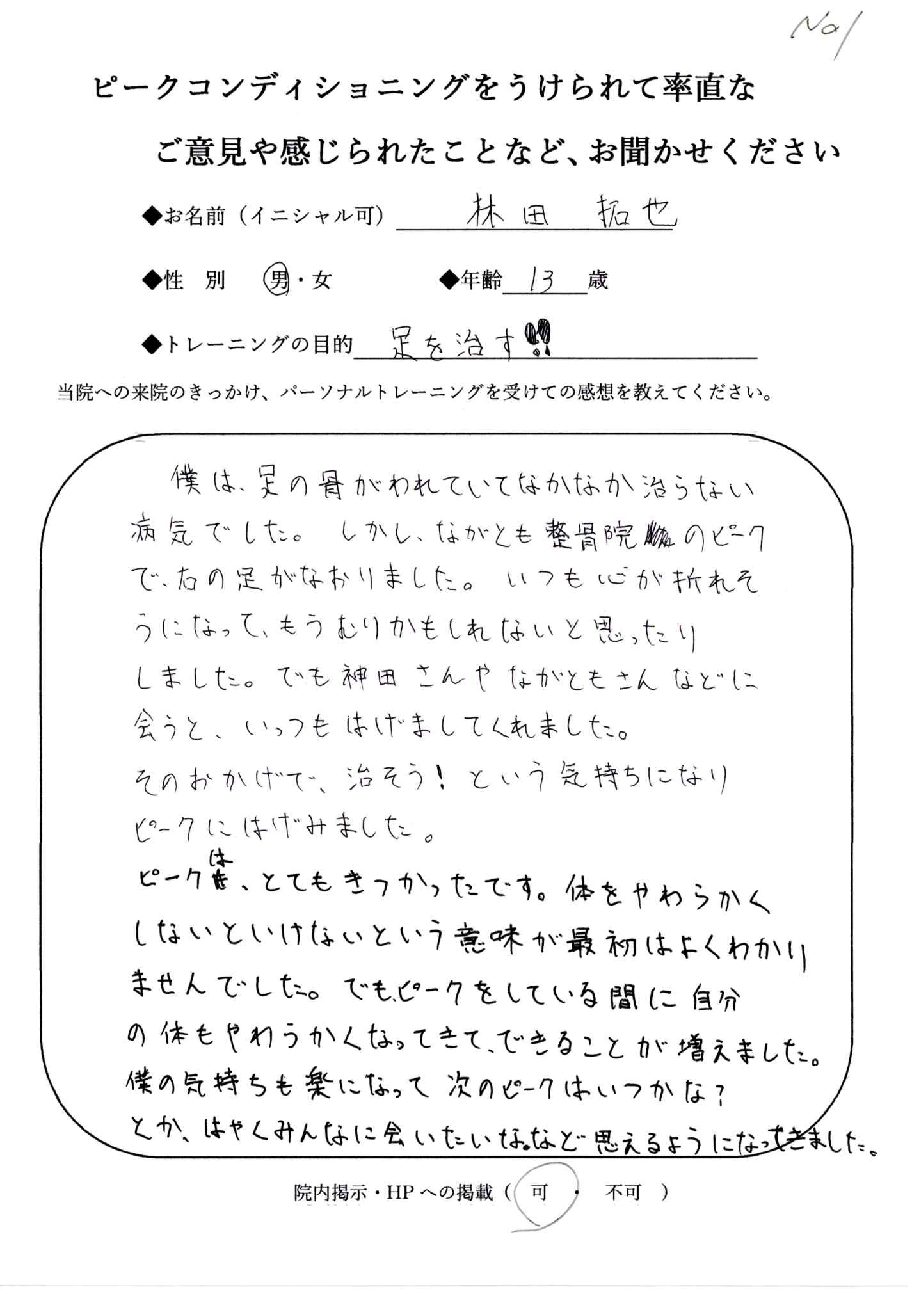 No1
ピークコンディショニングをうけられて率直な
ご意見や感じられたことなど、お聞かせください
◆お名前（イニシャル可） 林田 拓也
◆性 別 男・女 ◆年齢 13 歳
◆トレーニングの目的 足を治す!!
当院への来院のきっかけ、パーソナルトレーニングを受けての感想を教えてください。
僕は、足の骨がわれていてなかなか治らない
病気でした。しかし、ながとも整骨院のピーク
で、右の足がなおりました。いつも心が折れそ
うになって、もうむりかもしれないと思ったり
しました。でも神田さんやながともさんなどに
会うと、いっつもはげましてくれました。
そのおかげで、治そう！という気持ちになり
ピークにはげみました。
ピークは、とてもきつかったです。体をやわらかく
しないといけないという意味が最初はよくわかり
ませんでした。でも、ピークをしている間に自分
の体もやわらかくなってきて、できることが増えました。
僕の気持ちも楽になって次のピークはいつかな？
とか、はやくみんなに会いたいな。など思えるようになってきました。
院内掲示・HPへの掲載（ 可 ・ 不可 ）